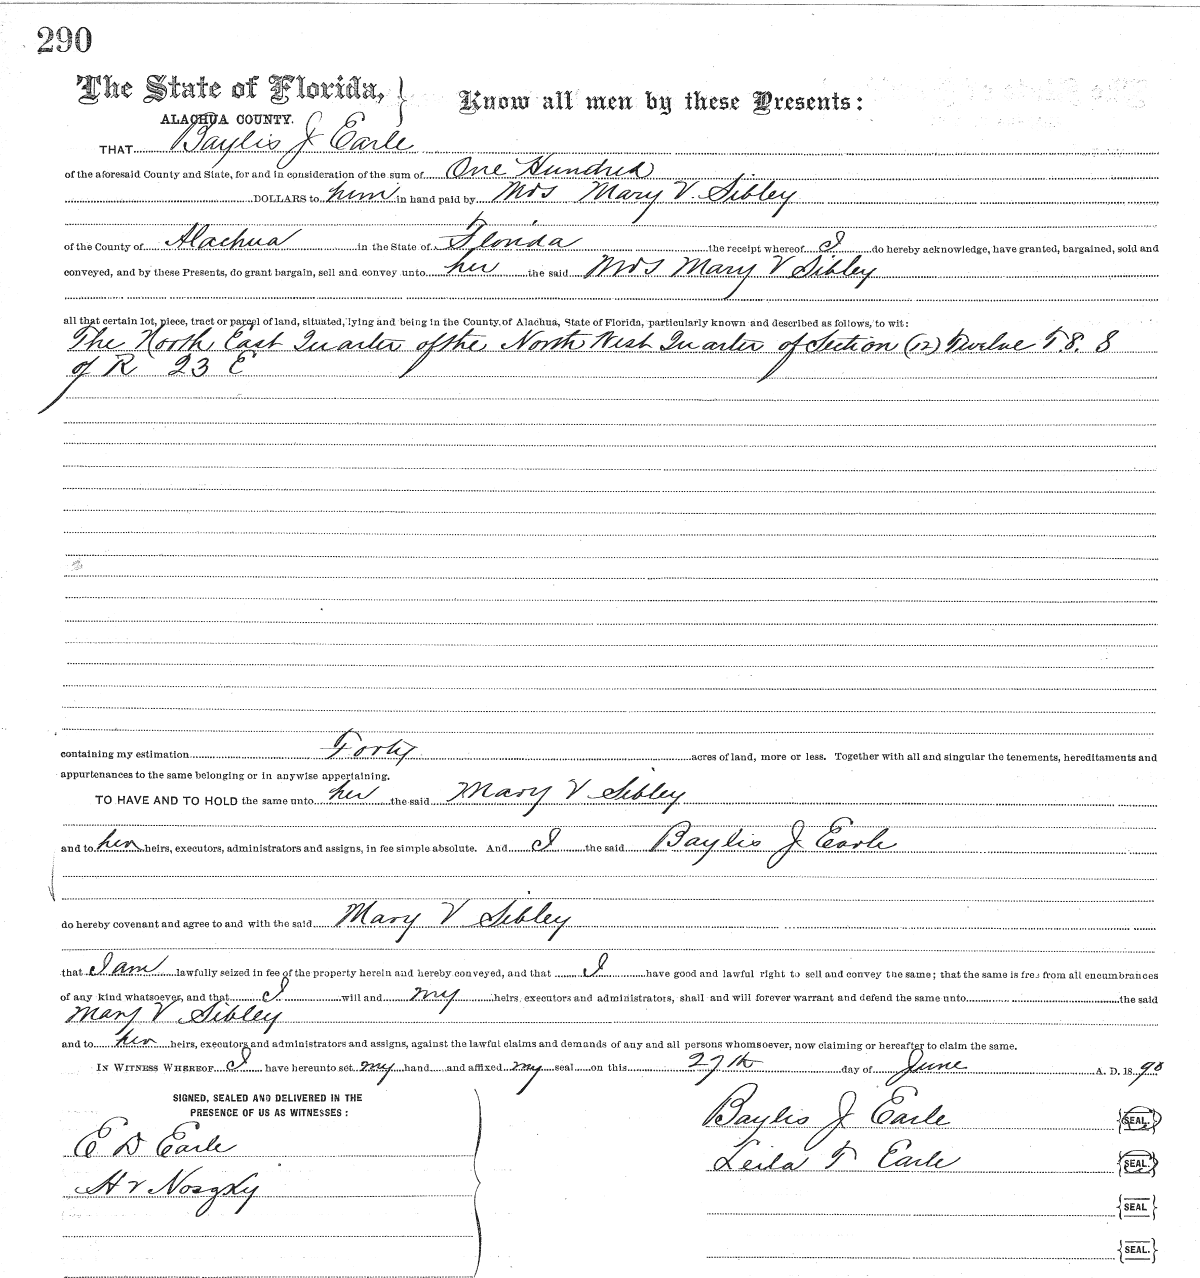 290
The State of Florida,
ALACHUA COUNTY.
Know all men by these Presents:
THAT Baylis J Earle
of the aforesaid County and State, for and in consideration of the sum of One Hundred
DOLLARS to him in hand paid by Mrs Mary V. Sibley
of the County of Alachua in the State of Florida the receipt whereof I do hereby acknowledge, have granted, bargained, sold and
conveyed, and by these Presents, do grant bargain, sell and convey unto her the said Mrs Mary V Sibley
all that certain lot, piece, tract or parcel of land, situated, lying and being in the County of Alachua, State of Florida, particularly known and described as follows, to wit:
The North East Quarter of the North West Quarter of Section (12) Twelve T. 8. S
of R 23 E
containing my estimation Forty acres of land, more or less. Together with all and singular the tenements, hereditaments and
appurtenances to the same belonging or in anywise appertaining.
TO HAVE AND TO HOLD the same unto her the said Mary V Sibley
and to her heirs, executors, administrators and assigns, in fee simple absolute. And I the said Baylis J Earle
do hereby covenant and agree to and with the said Mary V Sibley
that I am lawfully seized in fee of the property herein and hereby conveyed, and that I have good and lawful right to sell and convey the same; that the same is free from all encumbrances
of any kind whatsoever, and that I will and my heirs, executors and administrators, shall and will forever warrant and defend the same unto the said
Mary V Sibley
and to her heirs, executors and administrators and assigns, against the lawful claims and demands of any and all persons whomsoever, now claiming or hereafter to claim the same.
IN WITNESS WHEREOF I have hereunto set my hand and affixed my seal on this 27th day of June A. D. 1890
SIGNED, SEALED AND DELIVERED IN THE
PRESENCE OF US AS WITNESSES:
Baylis J Earle SEAL.
E D Earle
Leila T Earle SEAL.
H v
SEAL
SEAL.